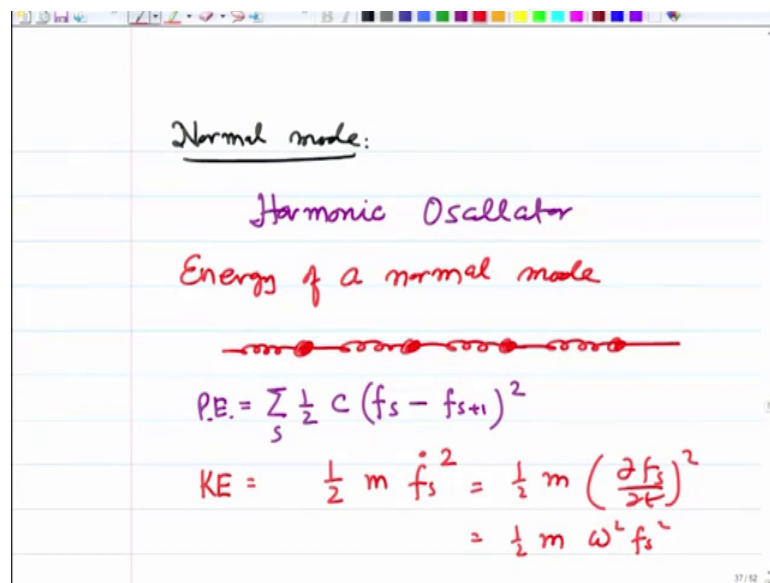 B I
Normal mode:
Harmonic Osallator
Energy of a normal mode
P.E. = ∑_S 1/2 C (f_S − f_{S+1})^2
KE = 1/2 m ḟ_S^2 = 1/2 m (∂f_S/∂t)^2
= 1/2 m ω^2 f_S^2
37/52